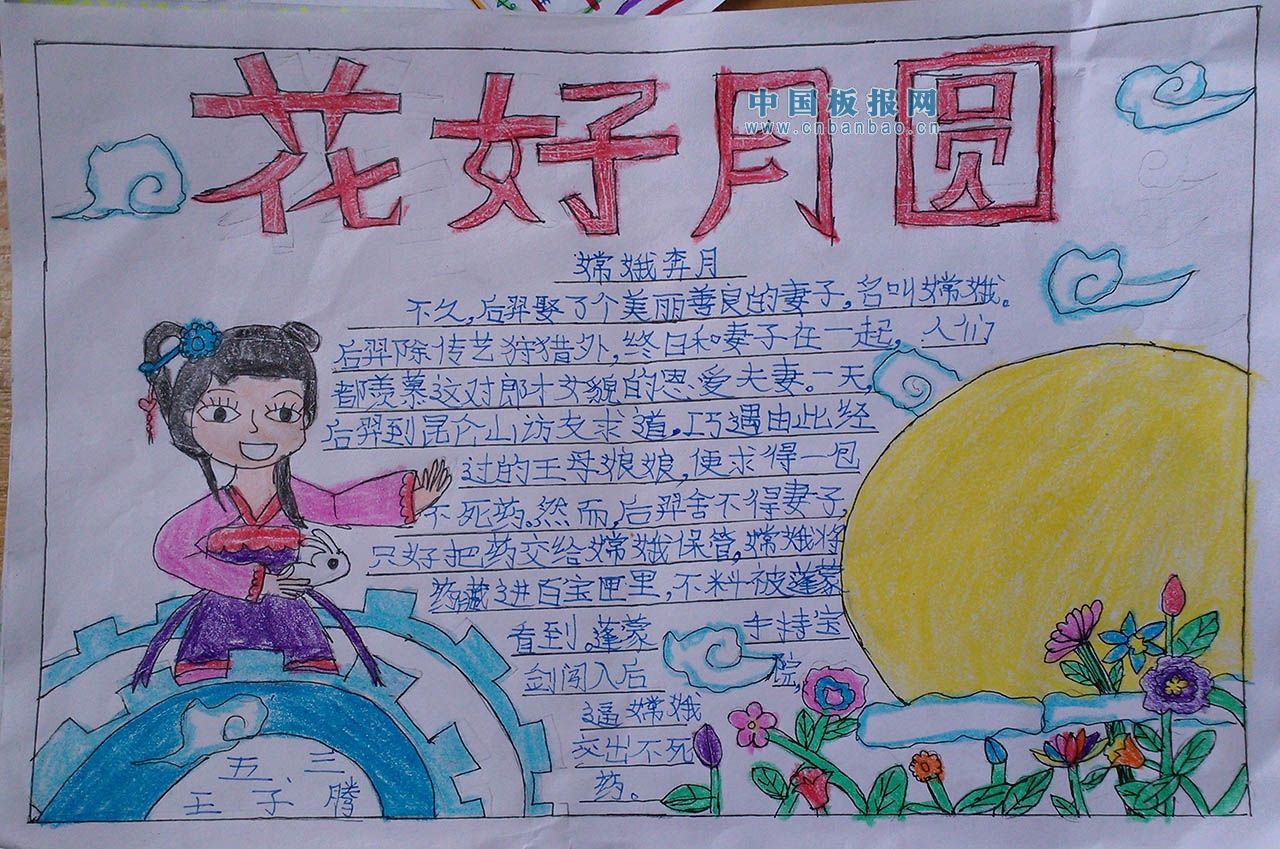 花好月圆
中国板报网
www.cnbanbao.cn
嫦娥奔月
不久,后羿娶了个美丽善良的妻子,名叫嫦娥。
后羿除传艺狩猎外,终日和妻子在一起,人们
都羡慕这对郎才女貌的恩爱夫妻。一天,
后羿到昆仑山访友求道,巧遇由此经
过的王母娘娘,便求得一包
不死药。然而,后羿舍不得妻子,
只好把药交给嫦娥保管,嫦娥将
药藏进百宝匣里,不料被蓬蒙
看到。蓬蒙 手持宝
剑闯入后 院,
逼嫦娥
交出不死
药。
五、三
王子腾